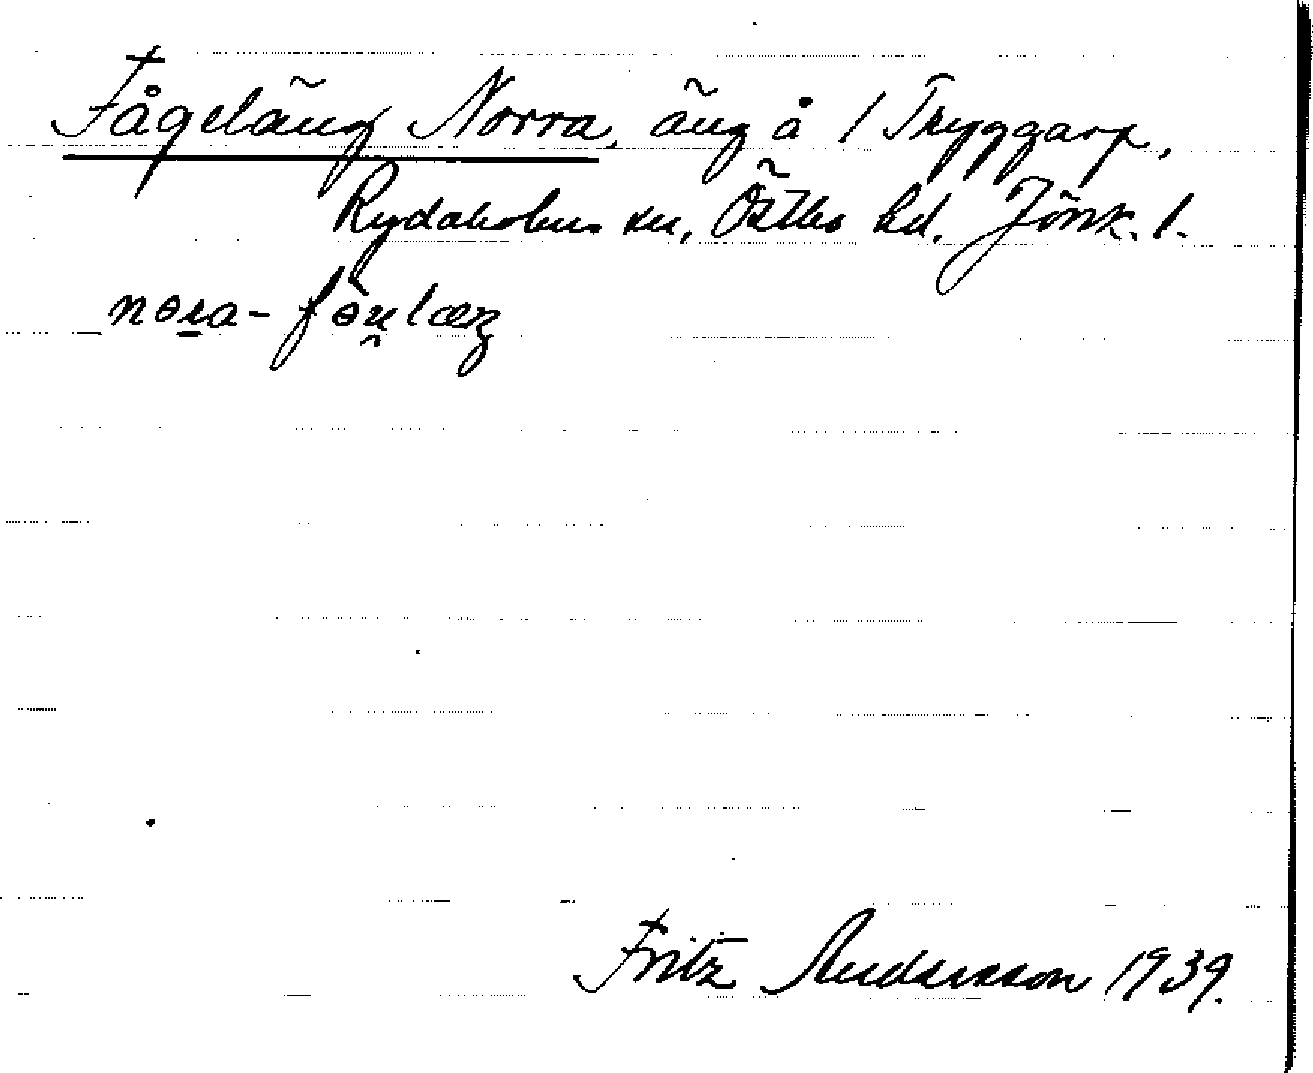 Fågeläng Norra, äng å / Tryggarp,
Rydaholms sn, Östbo hd. Jönk. l.
nɵra- fɵu̯læŋ
Fritz Andersson 1939.